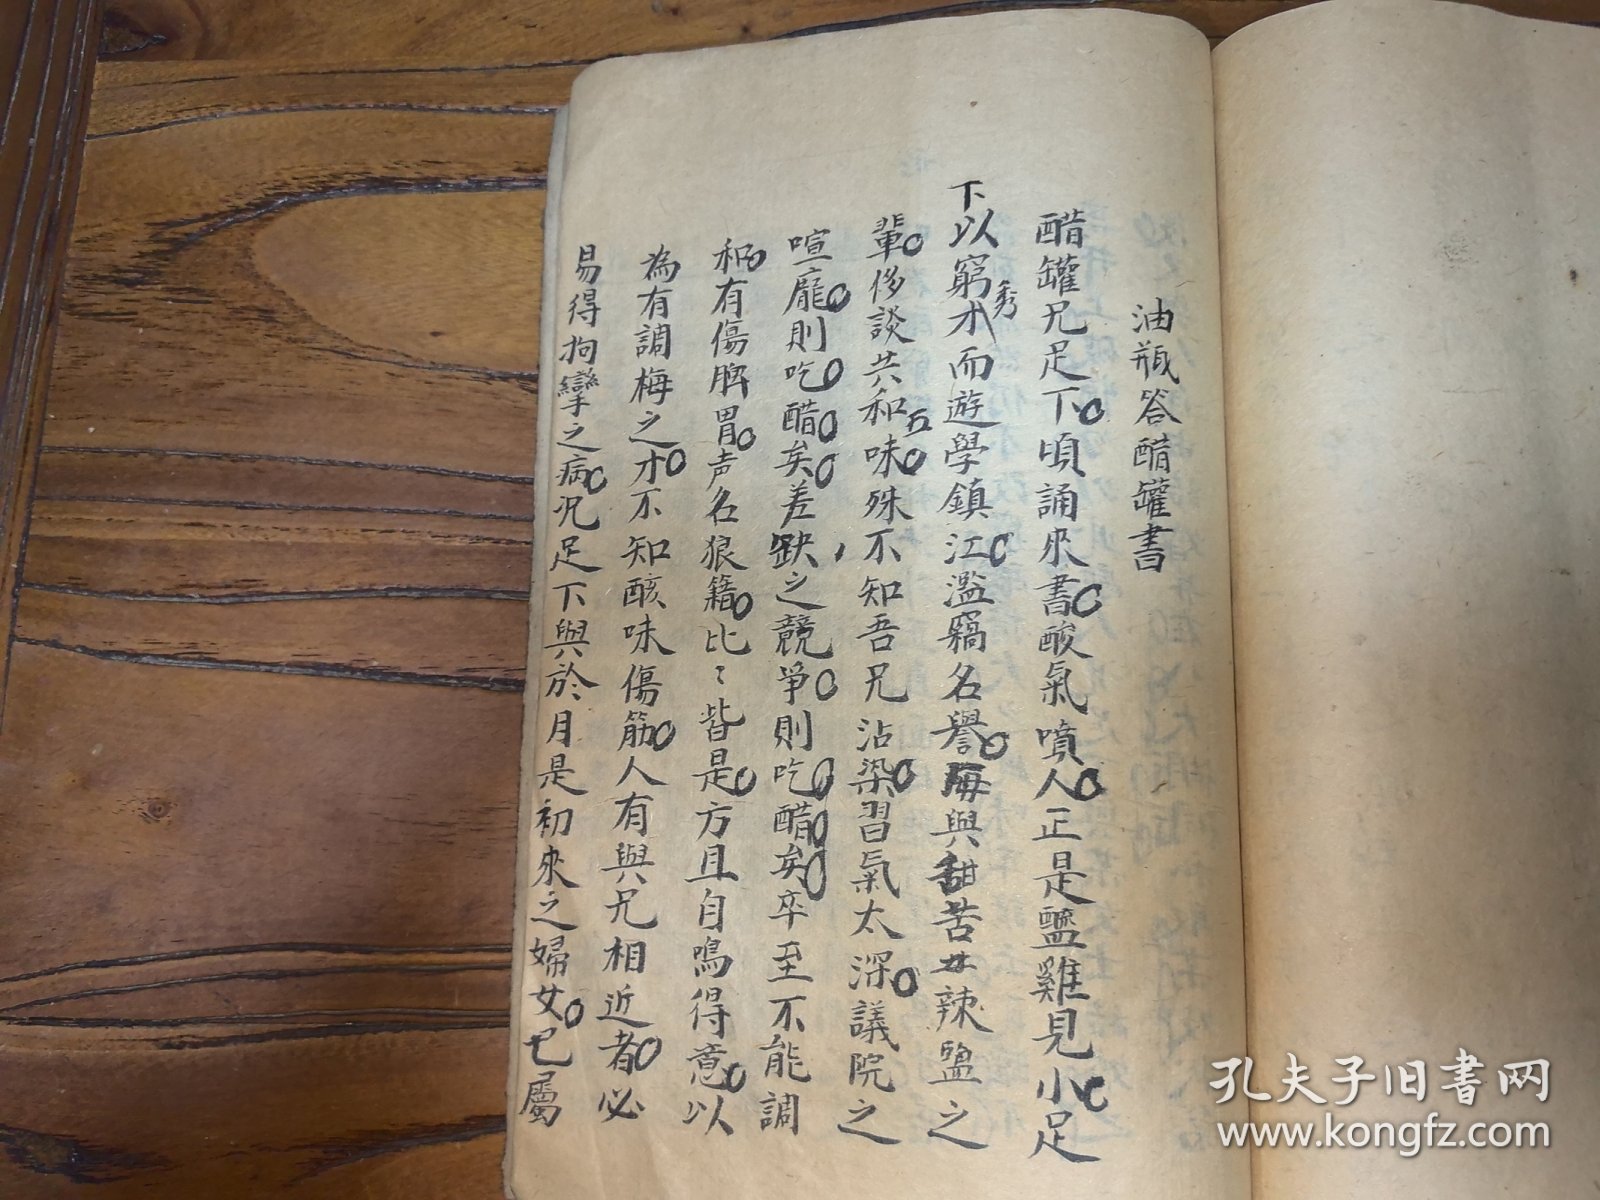 油瓶答醋罐書
醋罐兄足下頃誦來書酸氣噴人正是醯雞見小足
下以窮秀才而遊學鎮江濫竊名譽每與甜苦辣鹽之
輩侈談共和五味殊不知吾兄沾染習氣太深議院之
喧龐則吃醋矣差缺之競爭則吃醋矣卒至不能調
和有傷脾胃声名狼籍比〻皆是方且自鳴得意以
為有調梅之才不知酸味傷筋人有與兄相近者必
易得拘攣之病况足下與於月是初來之婦女已屬
孔夫子旧书网
www.kongfz.com